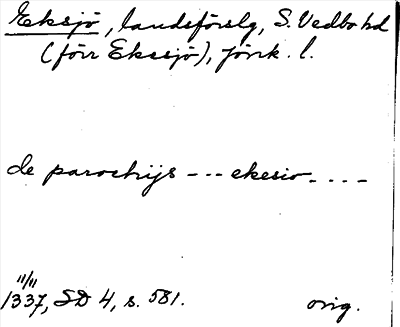 Eksjö, landsförslg, S. Vedbo hd
(förr Eksjö), Jönk. l.
de parochijs --- ekesio....
11/11
1337, SD 4, s. 581. orig.